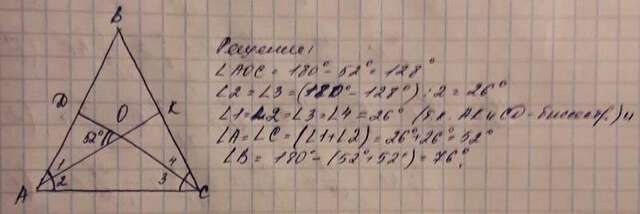 B
D
O
K
52°
1
2
4
3
A
C
Решение:
∠AOC = 180° - 52° = 128°
∠2 = ∠3 = (180° - 128°) : 2 = 26°
∠1 = ∠2 = ∠3 = ∠4 = 26° (т.к. AK и CD - биссектр.) и
∠A = ∠C = (∠1 + ∠2) = 26° + 26° = 52°
∠B = 180° - (52° + 52°) = 76°.